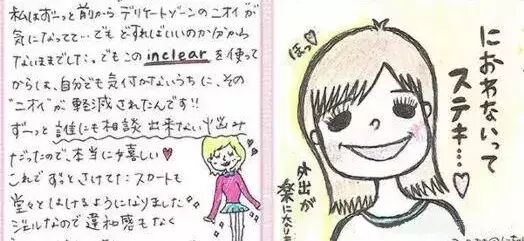 私はずーっと前からデリケートゾーンのニオイが
気になってて…でもどすればいいのか分から
ないままでした。でもこのinclearを使って
からは、自分でも気付かないうちに、その
"ニオイ"が軽減されたんです!!
ずーっと誰にも相談出来ない悩み
だったので、本当に嬉しい♥
これでずっとさけてた、スカートも
堂々とはけるようになりました
ジェルなので違和感もなく
ほっ♡
におわないって
ステキ…♡
外出が
楽になり